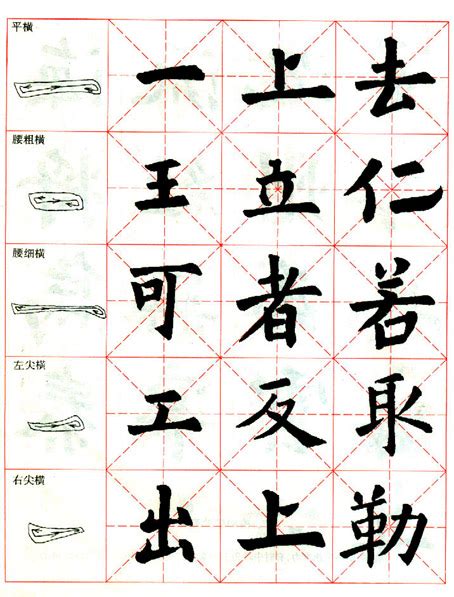 平横
一上去
腰粗横
王立仁
腰细横
可者若
左尖横
工反取
右尖横
出上勒